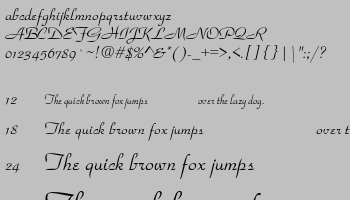 abcdefghijklmnopqrstuvwxyz
ABCDEFGHIJKLMNOPQR
0123456789`~!@#$%^&*()-_+=>,<.[]{}||":;/?
12 The quick brown fox jumps over the lazy dog.
18 The quick brown fox jumps over t
24 The quick brown fox jumps